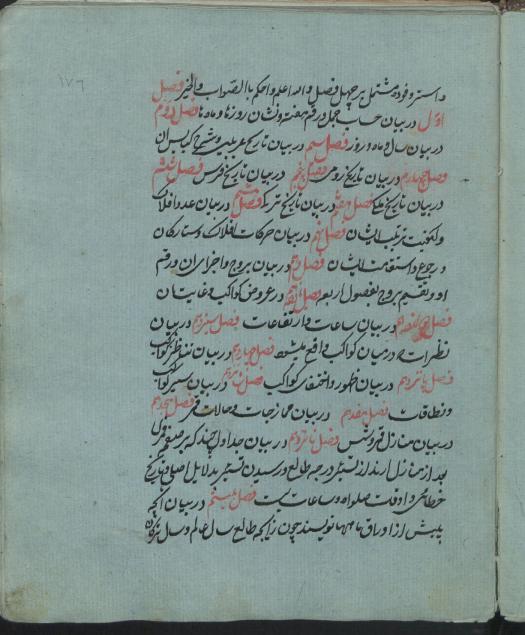 ۱۷۶
و استر فوده مشتمل بر چهل فصل والله اعلم و احکم باالصواب والخیر فصل
اول در بیان حساب جمل و رقم هفت و نشان روزها و ماه ها فصل دوم
در بیان سال و ماه و روز فصل سیم در بیان تاریخ عربی و شرح کبس آن
فصل چهارم در بیان تاریخ رومی فصل پنجم در بیان تاریخ فرس فصل ششم
در بیان تاریخ ملکی فصل هفتم در بیان تاریخ ترک فصل هشتم در بیان عدد افلاک
و کیفیت ترتیب ایشان فصل نهم در بیان حرکات افلاک و ستارکان
و رجوع و استقامت ایشان فصل دهم در بیان بروج و اجزای آن و رقم
او و تقسیم بروج بفصول اربعه فصل در عروض کواکب و غایت آن
فصل در بیان ساعات و ارتفاعات فصل سیزدهم در بیان
نظرات که در میان کواکب واقع میشود فصل چهاردهم در بیان تناظر کواکب
فصل پانزدهم در بیان ظهور و اختفای کواکب فصل شانزدهم در بیان سیر کواکب
و نطاقات فصل هفدهم در بیان ممازجات و حالات قمر فصل هجدهم
در بیان منازل قمر و شمس فصل نوزدهم در بیان جداول چند که بر صفحه
بعد از منازل آرند از تسییر درجه طالع و رسیدن تسییر بدلایل اصلی و تاریخ
خطائی و اوقات صلواه و ساعات فصل بیستم در بیان آنچه
پیش از اوراق ماهها نویسند چون زایجه طالع سال عالم و سال ترکان